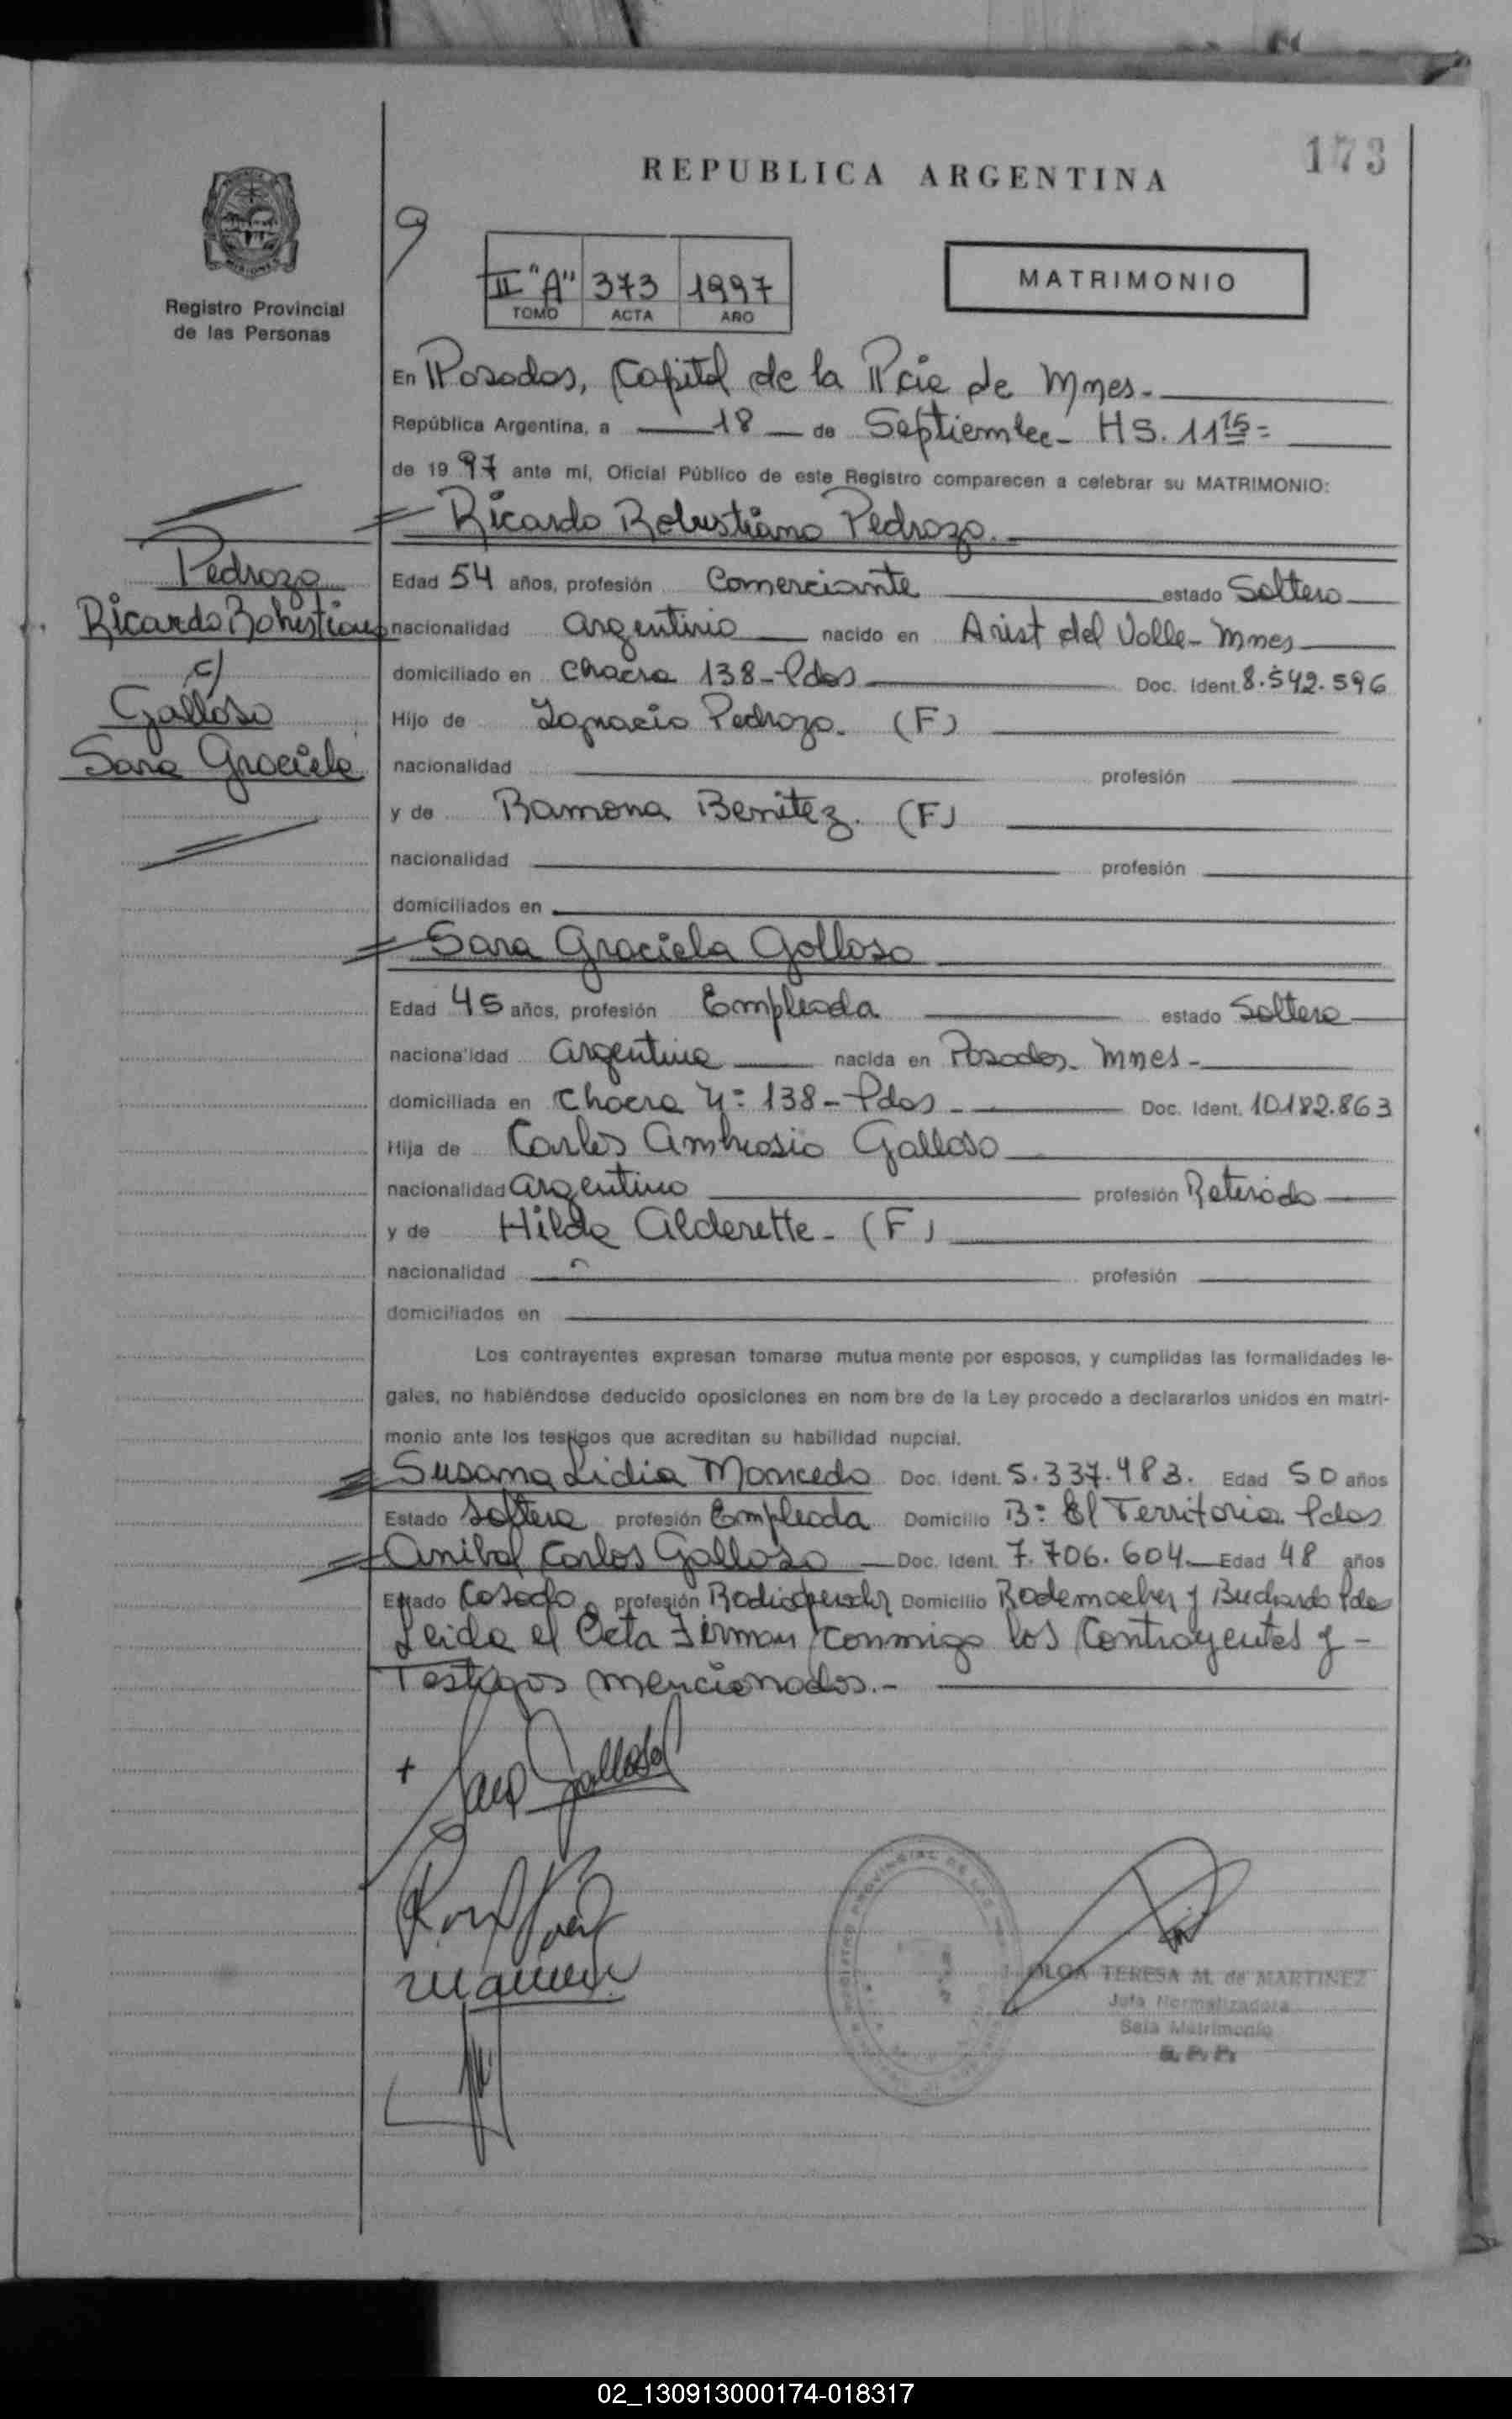 173
REPUBLICA ARGENTINA
9
II "A" 373 1997
TOMO ACTA AÑO
MATRIMONIO
Registro Provincial
de las Personas
En Posadas, Capital de la Pcia de Mnes.-
República Argentina, a 18 de Septiembre- HS. 11 15=
de 1997 ante mí, Oficial Público de este Registro comparecen a celebrar su MATRIMONIO:
Ricardo Robustiano Pedrozo.
Pedrozo
Ricardo Robustiano
c/
Galloso
Sara Graciela
Edad 54 años, profesión Comerciante estado Soltero
nacionalidad argentino nacido en Arist del Valle- Mnes
domiciliado en Chacra 138-Pdas Doc. Ident. 8.542.596
Hijo de Ignacio Pedrozo. (F)
nacionalidad profesión
y de Ramona Benitez. (F)
nacionalidad profesión
domiciliados en
Sara Graciela Galloso
Edad 45 años, profesión Empleada estado Soltera
nacionalidad argentina nacida en Posadas- Mnes-
domiciliada en Chacra Nº 138-Pdas- Doc. Ident. 10.182.863
Hija de Carlos Ambrosio Galloso
nacionalidad argentino profesión Retirado
y de Hilda Alderette- (F)
nacionalidad profesión
domiciliados en
Los contrayentes expresan tomarse mutua mente por esposos, y cumplidas las formalidades le-
gales, no habiéndose deducido oposiciones en nom bre de la Ley procedo a declararlos unidos en matri-
monio ante los testigos que acreditan su habilidad nupcial.
Susana Lidia Doc. Ident. 5.337.483. Edad 50 años
Estado Soltera profesión Empleada Domicilio Bº El Territorio Pdas
Anibal Carlos Galloso Doc. Ident. 7.706.604 Edad 48 años
Estado Casado profesión Radioperador Domicilio y Buchardo Pdas
Leida el Acta Firman conmigo los Contrayentes y -
Testigos mencionados.-
Sara Galloso
OLGA TERESA M. de MARTINEZ
Jefa Normalizadora
Sala Matrimonio
02_130913000174-018317